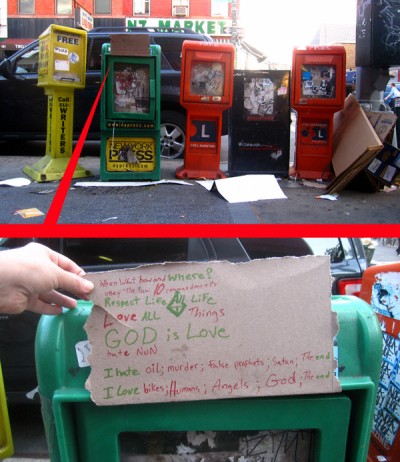 NT MARKET
FREE
Call
WRITERS
nypress.com
NEW YORK
PRESS
nypress.com
L
L
When what how and where?
obey The 10 commandments
Respect Life All Life
Love ALL Things
GOD is Love
hate NuN
I hate oil; murder; false prophets; satan; The end
I Love bikes; Humans; Angels; God; The end